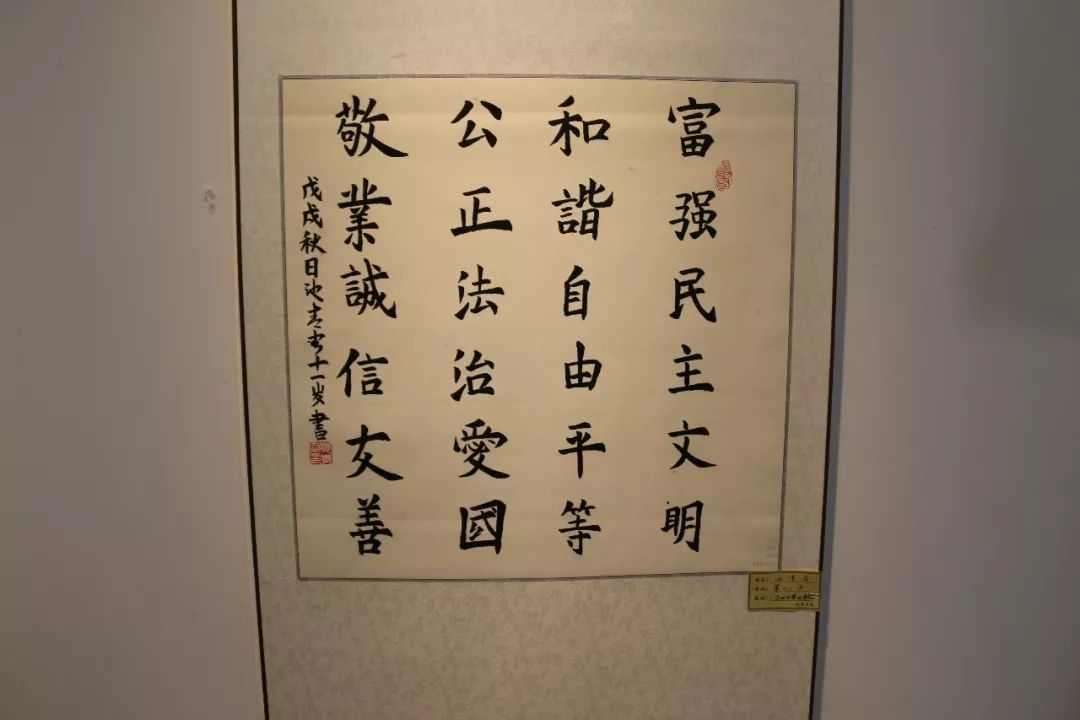 富强民主文明
和諧自由平等
公正法治愛國
敬業誠信友善
戊戌秋日池十一岁書